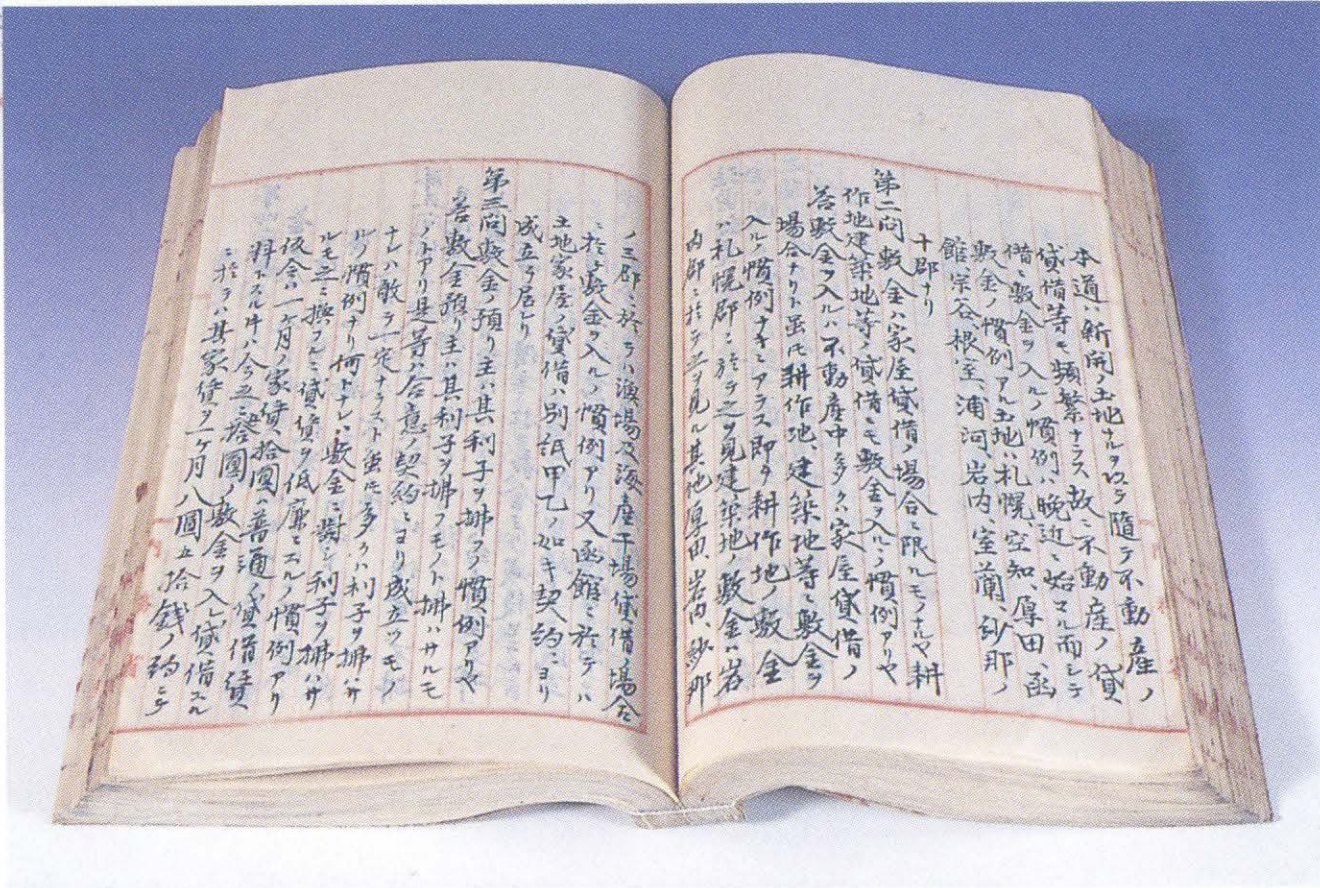 本道ハ新開ノ土地ナルヲ以テ隨テ不動産ノ
貸借等モ頻繁ナラス故ニ不動産ノ貸
借ニ敷金ヲ入ルノ慣例ハ晩近ニ始マル而シテ
敷金ノ慣例アル土地ハ札幌、空知、厚田、函
館、宗谷、根室、浦河、岩内、室蘭、紗那ノ
十郡ナリ
第二問敷金ハ家屋貸借ノ場合ニ限ルモノナルヤ耕
作地建築地等ノ貸借ニモ敷金ヲ入ルノ慣例アリヤ
答敷金ヲ入ルハ不動産中多クハ家屋貸借ノ
場合ナリト虽𪜈耕作地、建築地等ニ敷金ヲ
入ルノ慣例ナキニアラス即チ耕作地ノ敷金
ハ札幌郡ニ於テ之ヲ見建築地ノ敷金ハ岩
内郡ニ於テ之ヲ見ル其他厚田、岩内、紗那
ノ三郡ニ於テハ漁場及海産干場貸借ノ場合
ニ於テ敷金ヲ入ルノ慣例アリ又函館ニ於テハ
土地家屋ノ貸借ハ別紙甲乙ノ如キ契約ニヨリ
成立ヲ居レリ
第三問敷金ノ預リ主ハ其利子ヲ拂フノ慣例アリヤ
答敷金預リ主ハ其利子ヲ拂フモノト拂ハサルモ
ノトアリ是等ハ合意ノ契約ニヨリ成立ツモノ
ナレハ敢テ一定ナラスト虽𪜈多クハ利子ヲ拂ハサ
ルノ慣例ナリ何トナレハ敷金ニ對シ利子ヲ拂ハサ
ルモ之ニ換フルニ貸賃ヲ低廉ニスルノ慣例アリ
仮令ハ一ケ月ノ家賃拾圓ハ普通ノ貸借賃
料トスル𪜈ハ今五拾圓ノ敷金ヲ入レ貸借スル
ニ於テハ其家賃ヲ一ケ月八圓五拾銭ノ約ニテ